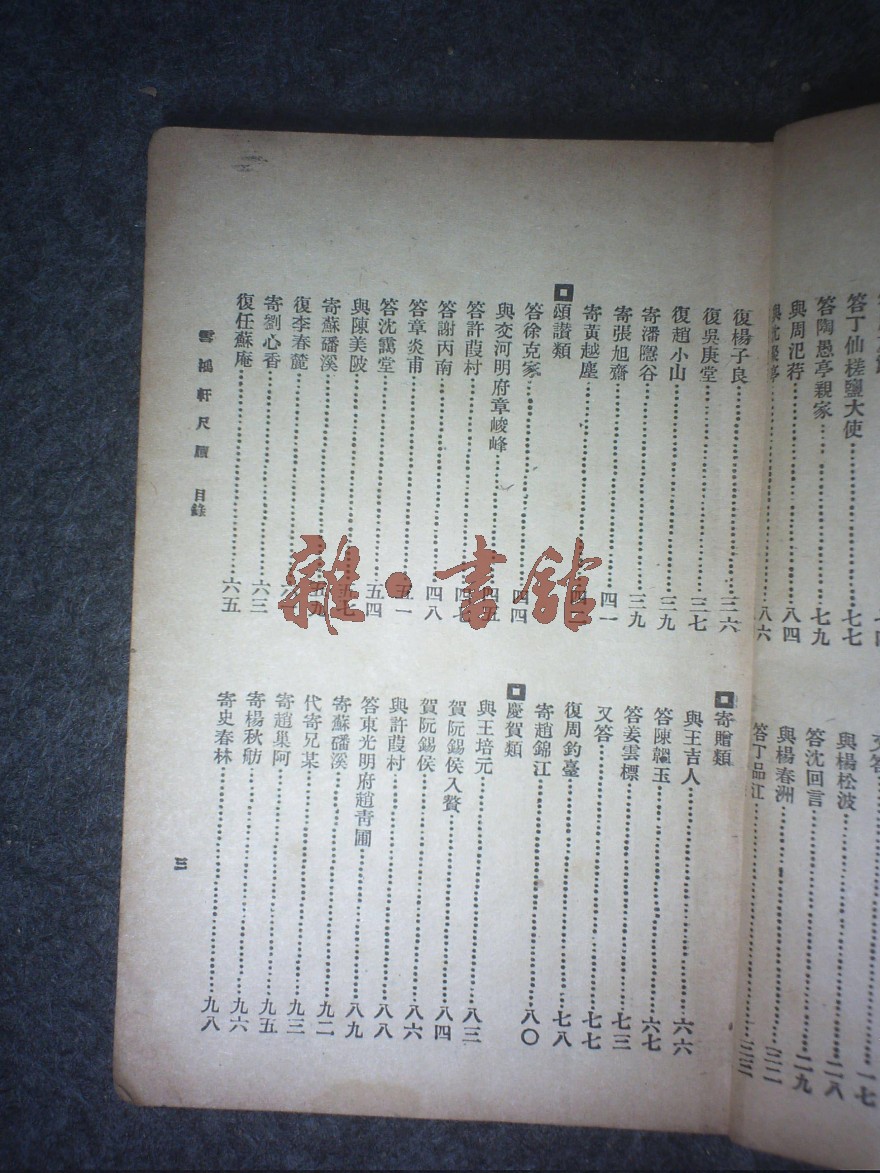 答丁仙槎鹽大使……七七
答陶愚亭親家……七九
與周汜荇……八四
八六
與楊松波……二八
答沈回言……二九
與楊春洲
答丁品江
復楊子良……三六
復吳庚堂……三七
復趙小山……三九
寄潘隱谷……三九
寄張旭齋……四一
寄黃越塵
頌讚類
答徐克家……四四
與交河明府章峻峰
答許葭村
答謝丙南……四八
答章炎甫……五一
答沈靄堂……五四
與陳美陂
寄蘇磻溪
復李春麓
寄劉心香……六三
復任蘇庵……六五
寄贈類
與王吉人……六六
答陳韞玉……六七
答姜雲標……七三
又答……七七
復周鈞臺……七八
寄趙錦江……八〇
慶賀類
與王培元……八三
賀阮錫侯入贅……八四
賀阮錫侯……八六
與許葭村……八八
答東光明府趙靑圃……八九
寄蘇磻溪……九二
代寄兄某……九三
寄趙巢阿……九五
寄楊秋舫……九六
寄史春林……九八
雪鴻軒尺牘 目錄
雜·書館